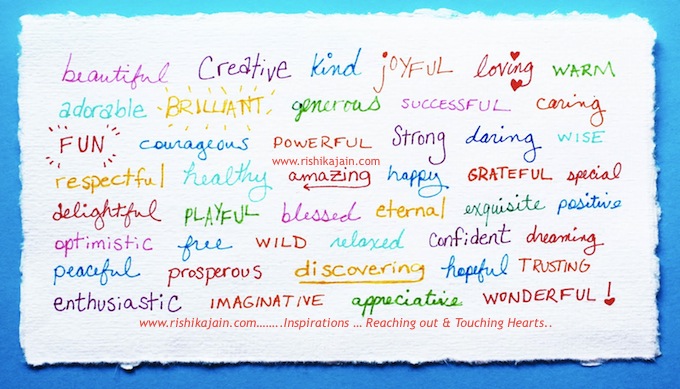 beautiful Creative kind joyful loving WARM
adorable BRILLIANT generous SUCCESSFUL caring
FUN courageous POWERFUL Strong daring WISE
www.rishikajain.com
respectful healthy amazing happy GRATEFUL special
delightful PLAYFUL blessed eternal exquisite positive
optimistic free WILD relaxed confident dreaming
peaceful prosperous discovering hopeful TRUSTING
enthusiastic IMAGINATIVE appreciative WONDERFUL!
www.rishikajain.com........Inspirations ... Reaching out & Touching Hearts..